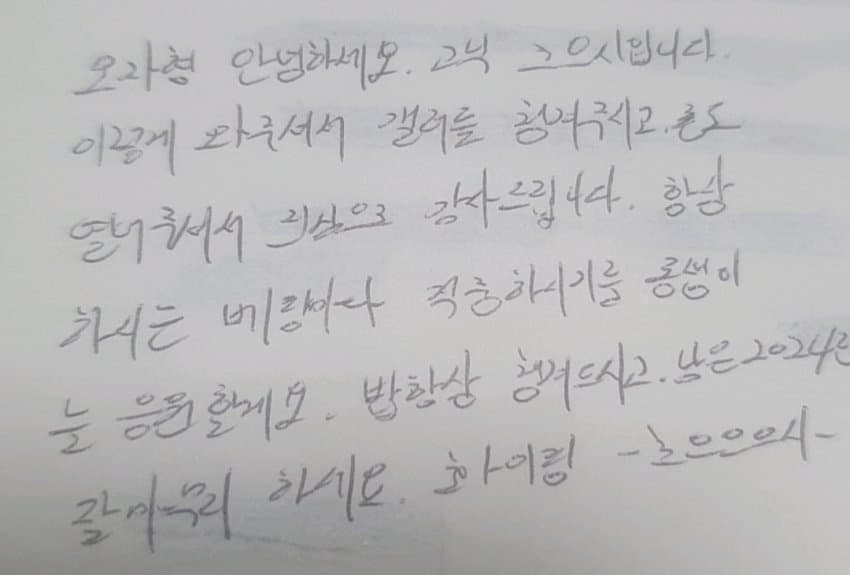 오자형 안녕하세요. 고닉 그으시입니다.
이렇게 와주셔서 갤러를 챙겨주시고. 톤도
열어주셔서 진심으로 감사드립니다. 항상
하시는 베팅마다 적중하시기를 동생이
늘 응원할게요. 밥항상 챙겨드시고. 남은 2024년
잘 마무리 하세요. 화이팅 -그으으으시-